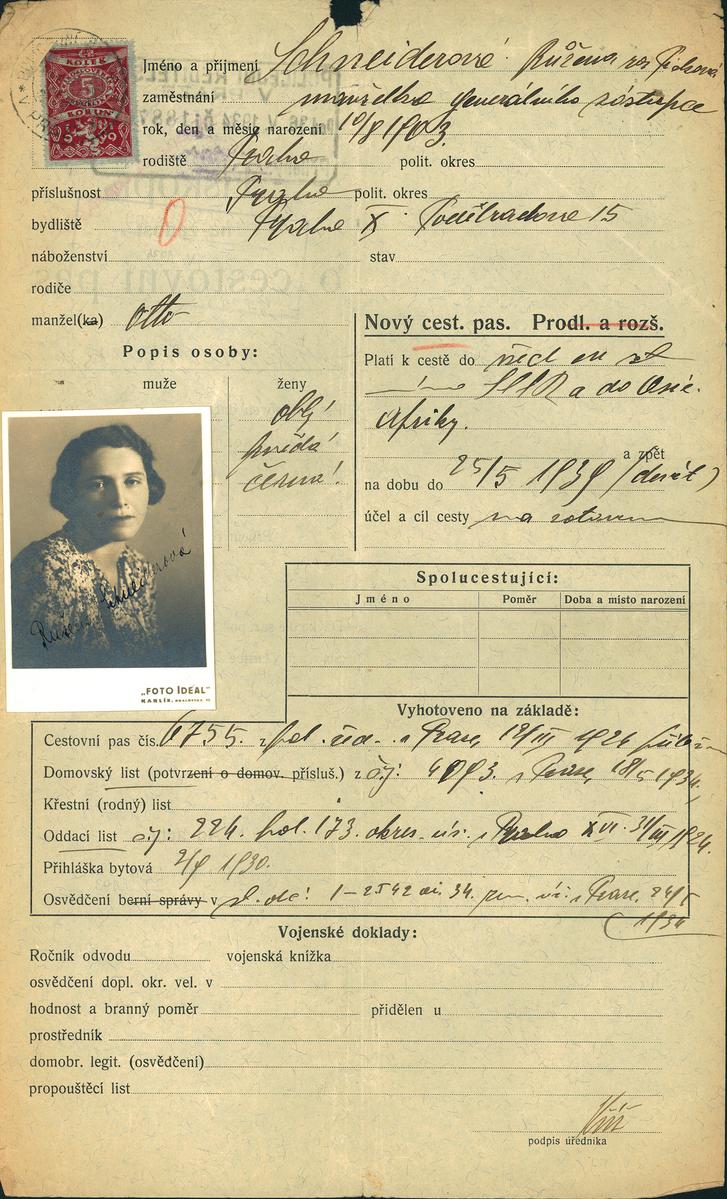 KOLEK
5
KORUN
Jméno a příjmení Schneiderová Růžena roz.
zaměstnání manželka generálního zástupce
rok, den a měsíc narození 10/8 1903.
rodiště Praha polit. okres
příslušnost Praha polit. okres
bydliště Praha X Poděbradova 15
náboženství stav
rodiče
manžel(ka) Otto
Nový cest. pas. Prodl. a rozš.
Popis osoby:
muže ženy
Platí k cestě do
SSSR a do Asie
Afriky.
a zpět
oblý
hnědá
černá
na dobu do 25/5 1939 (devět)
účel a cíl cesty na
Růžena Schneiderová
„FOTO IDEAL"
KARLÍN,
Spolucestující:
Jméno Poměr Doba a místo narození
Vyhotoveno na základě:
Cestovní pas čís. 6755. z pol. řed. v Praze, /III 1926
Domovský list (potvrzení o domov. přísluš.) z čj: 4093. v Praze, 18/5 1934.
Křestní (rodný) list
Oddací list čj: 224. fol. 173. okres. úř. v Praha XVI. 31/III 1924.
Přihláška bytová 2/9 1930.
Osvědčení berní správy v č. dč: 1-2542 ai. 34. v Praze, 24/5
1934
Vojenské doklady:
Ročník odvodu vojenská knížka
osvědčení dopl. okr. vel. v
hodnost a branný poměr přidělen u
prostředník
domobr. legit. (osvědčení)
propouštěcí list
podpis úředníka